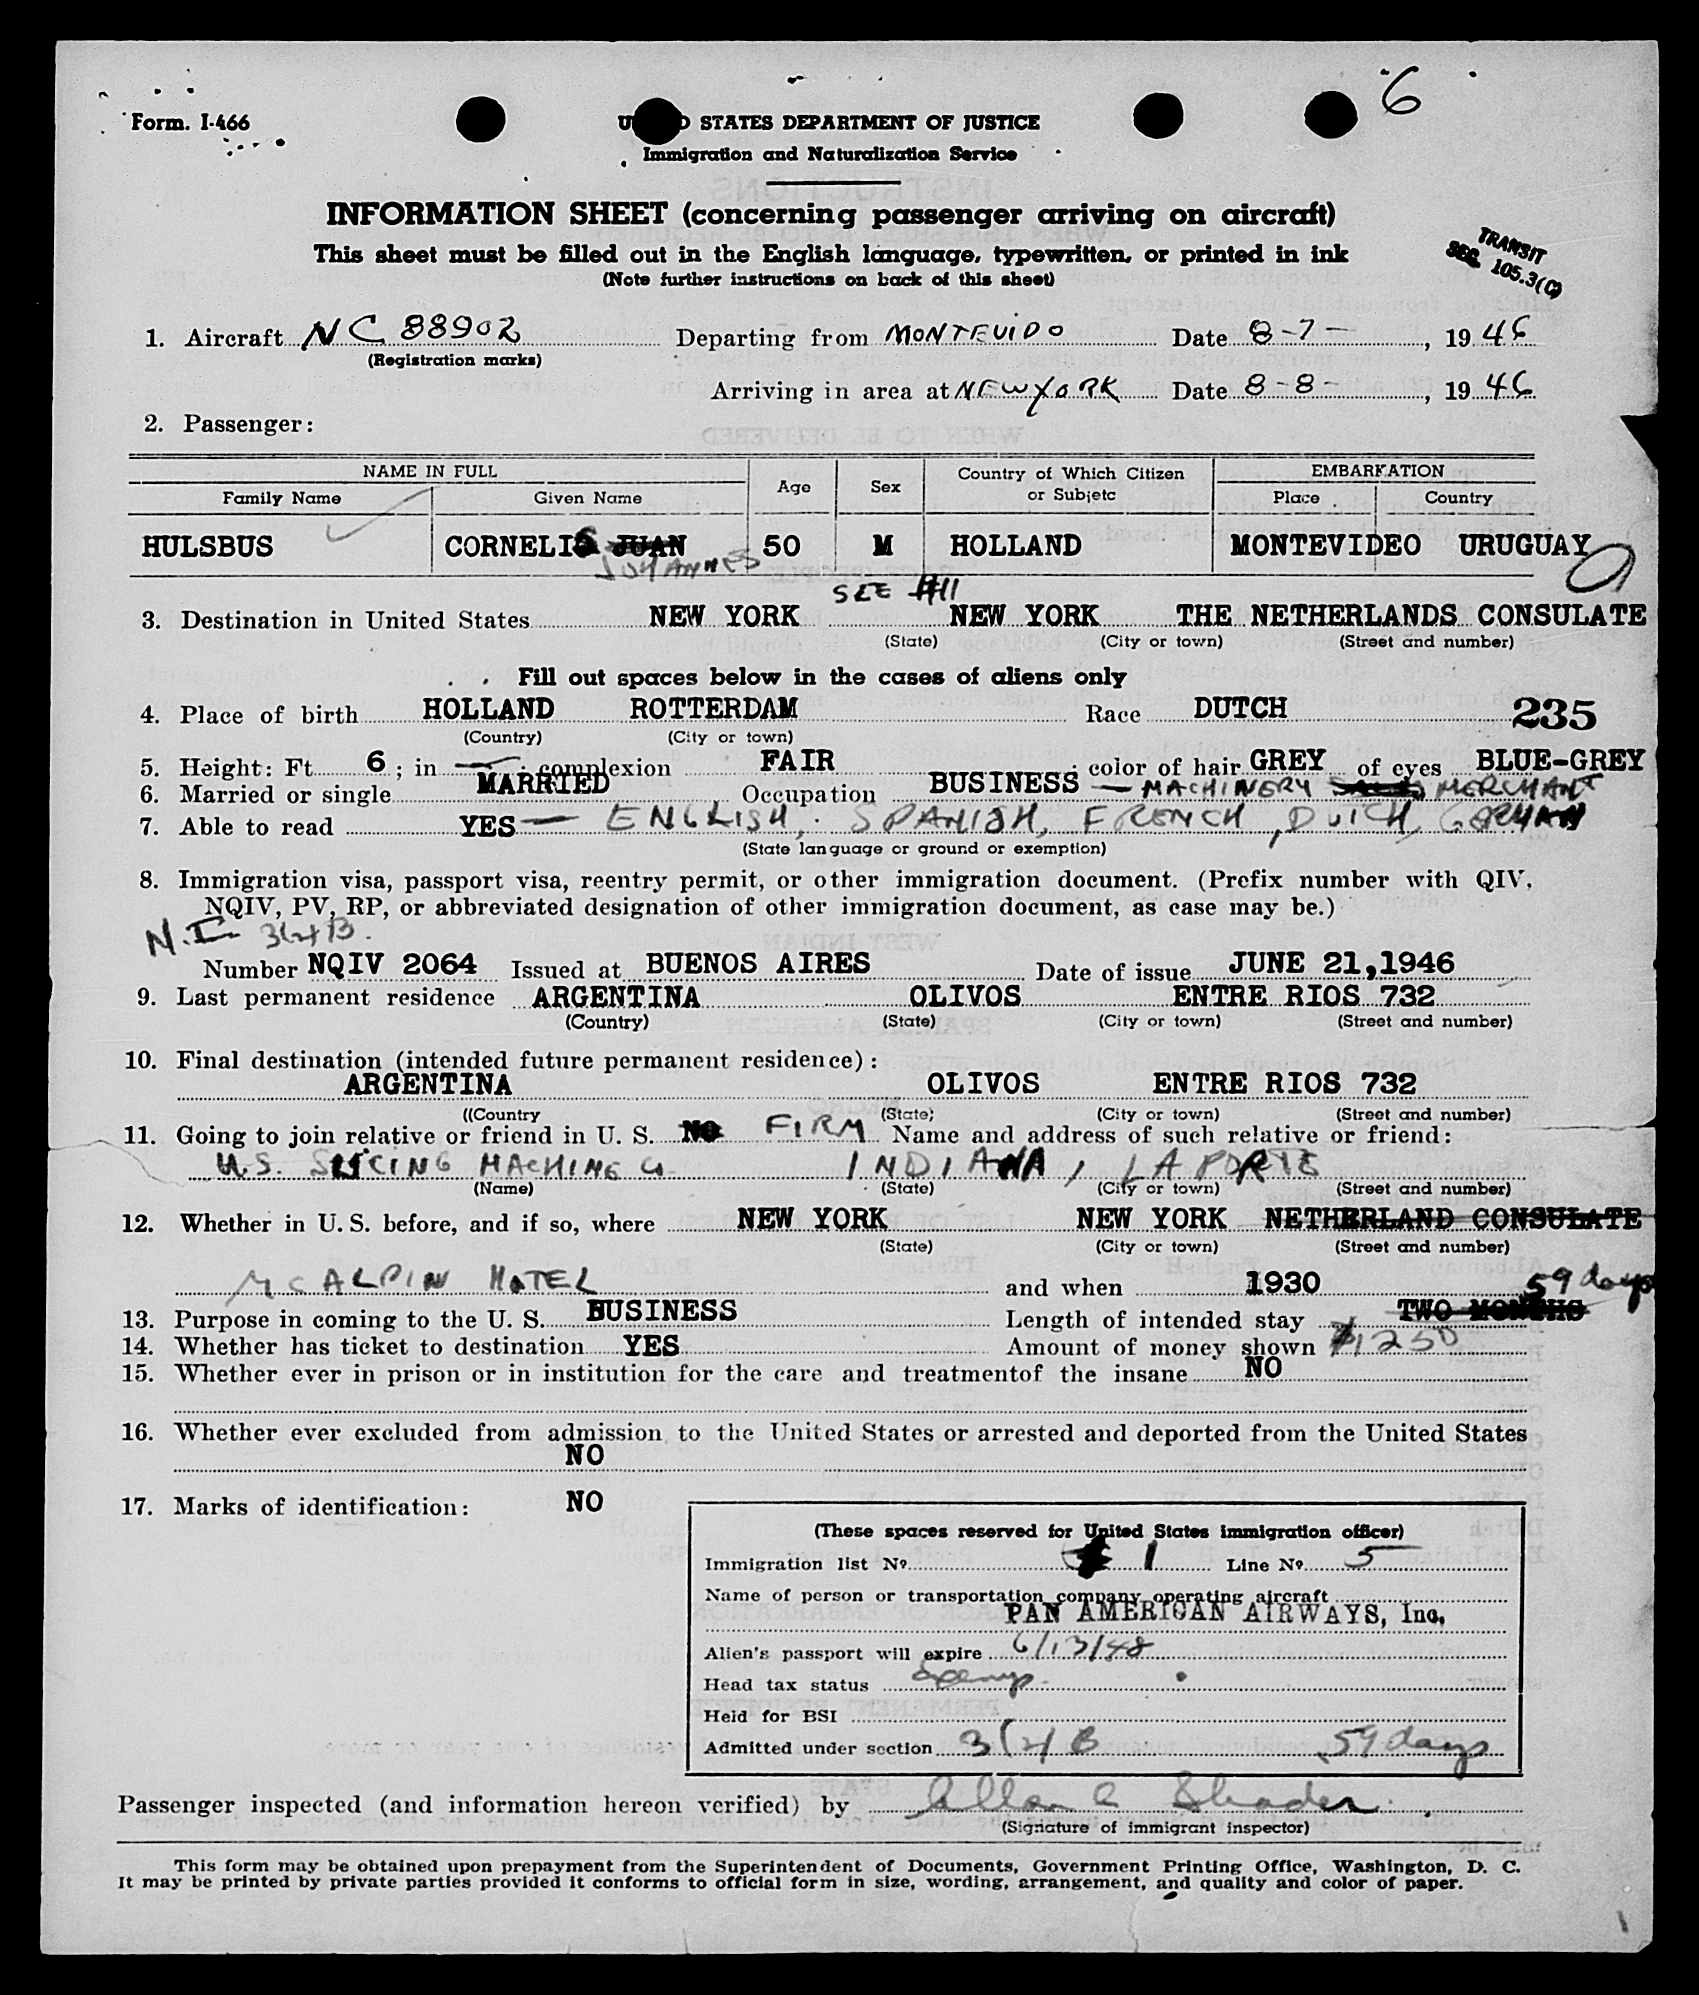 6
Form. I-466
STATES DEPARTMENT OF JUSTICE
Immigration and Naturalization Service
INFORMATION SHEET (concerning passenger arriving on aircraft)
This sheet must be filled out in the English language, typewritten, or printed in ink
(Note further instructions on back of this sheet)
TRANSIT
SEC. 105.3(C)
1. Aircraft NC 88902 Departing from MONTEVIDO Date 8-7- , 19 46
(Registration marks)
Arriving in area at NEW YORK Date 8-8- , 19 46
2. Passenger:
NAME IN FULL Age Sex Country of Which Citizen or Subjetc EMBARKATION
Family Name Given Name Place Country
HULSBUS CORNELIS JUAN 50 M HOLLAND MONTEVIDEO URUGUAY
JOHANNES
SEE #11
3. Destination in United States NEW YORK NEW YORK THE NETHERLANDS CONSULATE
(State) (City or town) (Street and number)
Fill out spaces below in the cases of aliens only
4. Place of birth HOLLAND ROTTERDAM Race DUTCH 235
(Country) (City or town)
5. Height: Ft. 6 ; in — ; complexion FAIR ; color of hair GREY of eyes BLUE-GREY
6. Married or single MARRIED Occupation BUSINESS — MACHINERY MERCHANT
7. Able to read YES — ENGLISH, SPANISH, FRENCH, DUTCH, GERMAN
(State language or ground or exemption)
8. Immigration visa, passport visa, reentry permit, or other immigration document. (Prefix number with QIV,
NQIV, PV, RP, or abbreviated designation of other immigration document, as case may be.)
N.I. 3(2)B.
Number NQIV 2064 Issued at BUENOS AIRES Date of issue JUNE 21,1946
9. Last permanent residence ARGENTINA OLIVOS ENTRE RIOS 732
(Country) (State) (City or town) (Street and number)
10. Final destination (intended future permanent residence):
ARGENTINA OLIVOS ENTRE RIOS 732
((Country (State) (City or town) (Street and number)
11. Going to join relative or friend in U. S. NO FIRM Name and address of such relative or friend:
U.S. SLICING MACHINE Co INDIANA, LA PORTE
(Name) (State) (City or town) (Street and number)
12. Whether in U. S. before, and if so, where NEW YORK NEW YORK NETHERLAND CONSULATE
(State) (City or town) (Street and number)
MCALPIN HOTEL and when 1930
59 days
13. Purpose in coming to the U. S. BUSINESS Length of intended stay TWO MONTHS
14. Whether has ticket to destination YES Amount of money shown $1250
15. Whether ever in prison or in institution for the care and treatmentof the insane NO
16. Whether ever excluded from admission to the United States or arrested and deported from the United States
NO
17. Marks of identification: NO
(These spaces reserved for United States immigration officer)
Immigration list No. 1 Line No. 5
Name of person or transportation company operating aircraft
PAN AMERICAN AIRWAYS, Inc.
Alien's passport will expire 6/13/48
Head tax status Exemp.
Held for BSI
Admitted under section 3(2)B 59 days
Passenger inspected (and information hereon verified) by Allan C Shader
(Signature of immigrant inspector)
This form may be obtained upon prepayment from the Superintendent of Documents, Government Printing Office, Washington, D. C.
It may be printed by private parties provided it conforms to official form in size, wording, arrangement, and quality and color of paper.